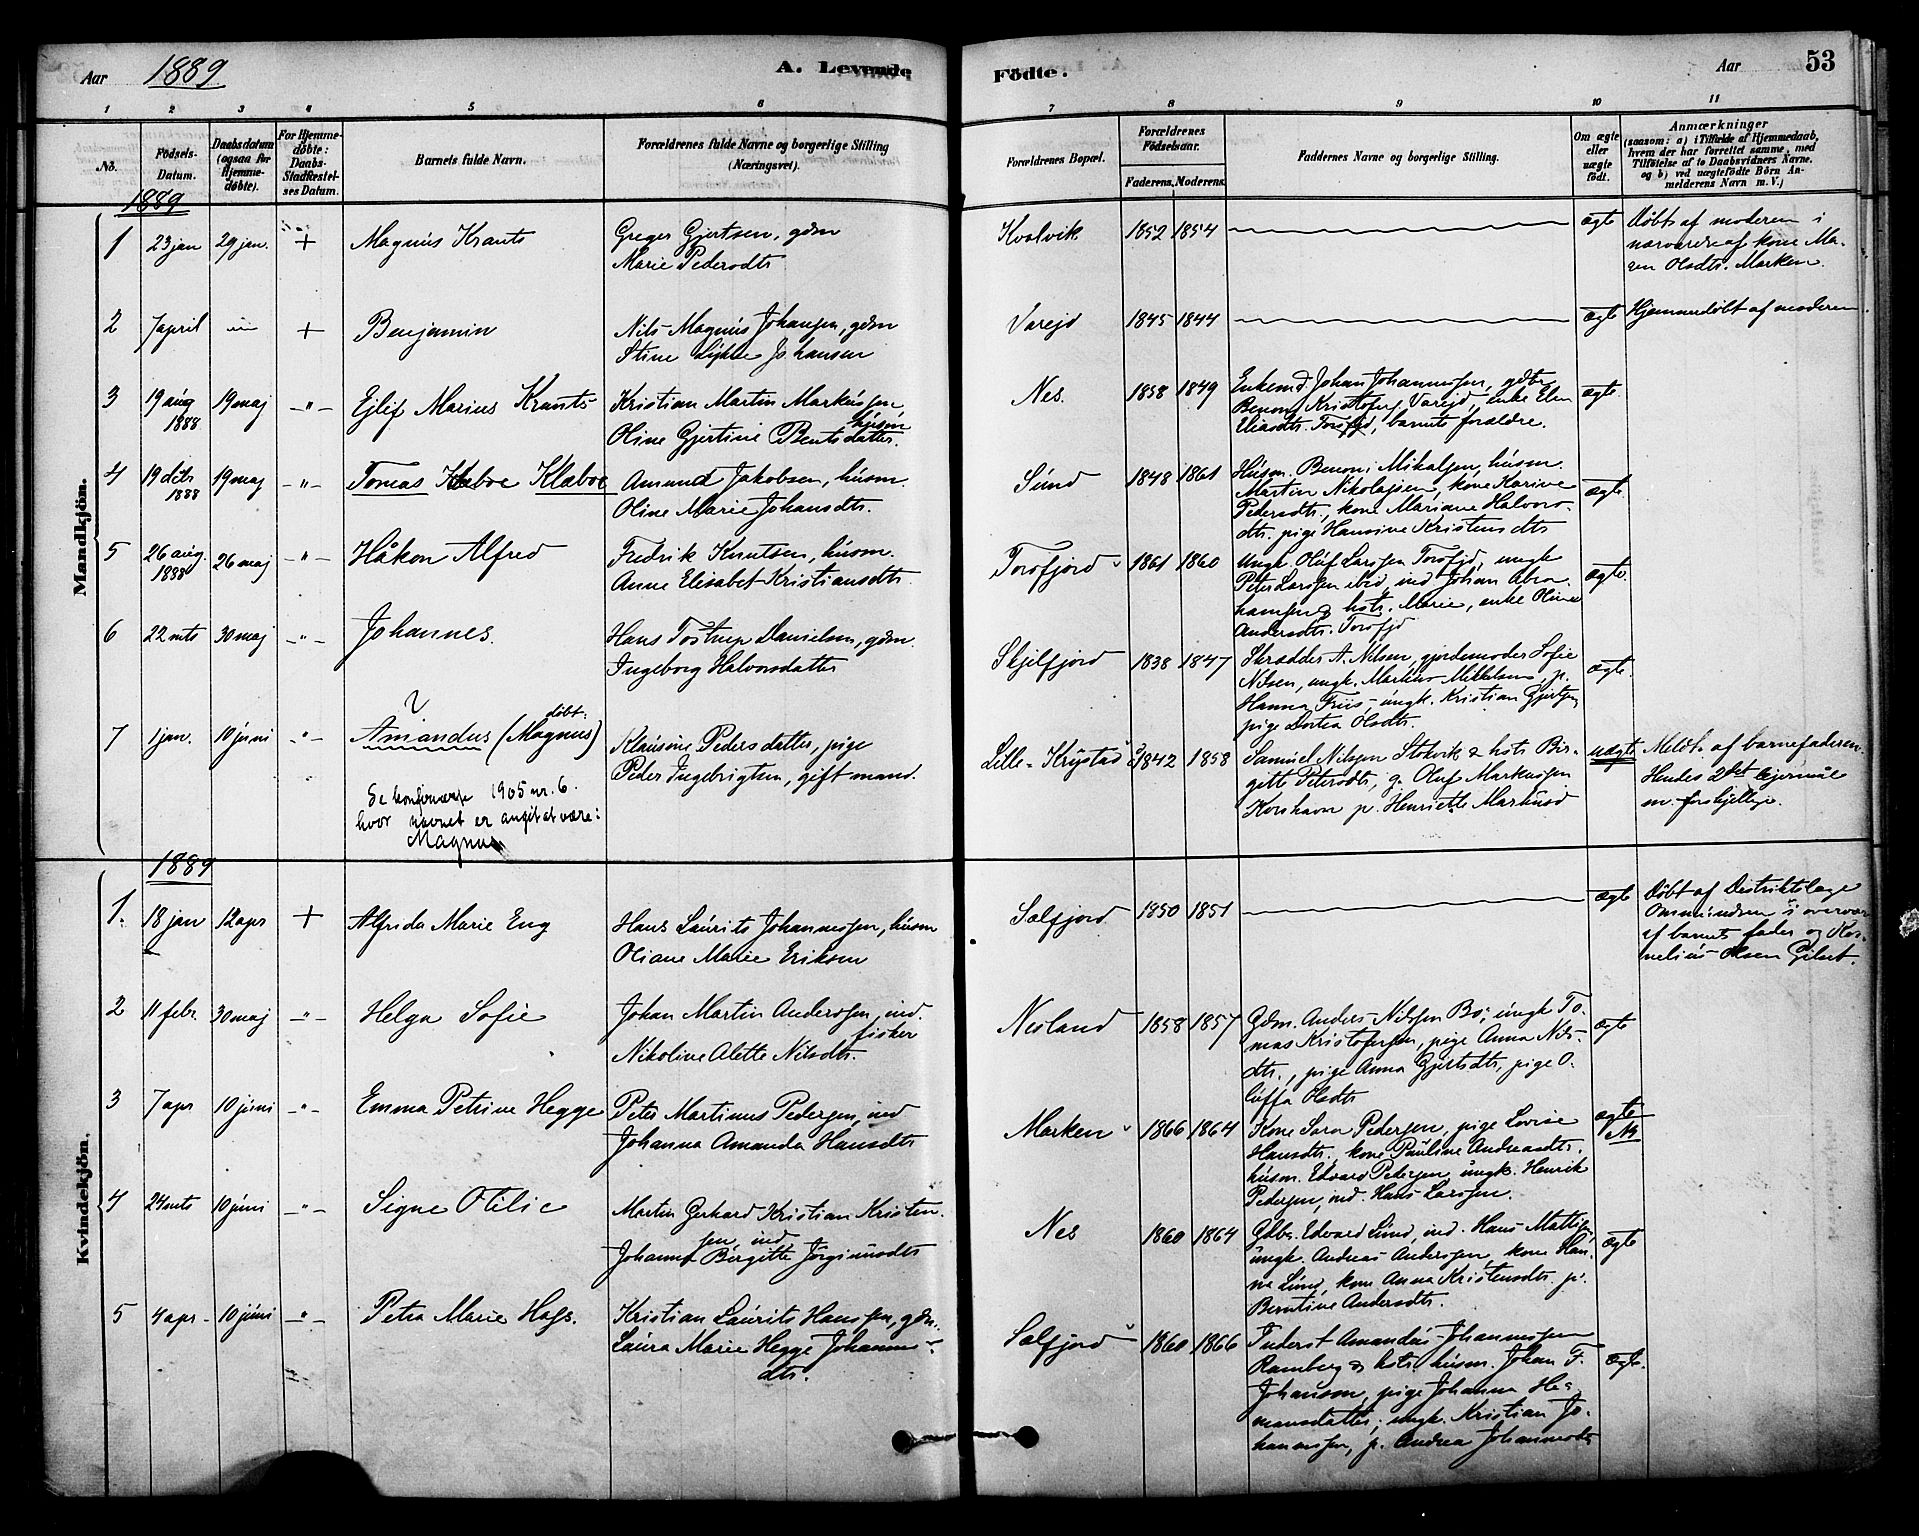 Aar 1889 A. Levende Födte. Aar 53
1 2 3 4 5 6 7 8 9 10 11
No. Födsels-Datum. Daabsdatum (ogsaa for Hjemmedöbte). For Hjemmedöbte: Daabs-Stadfæstelses Datum. Barnets fulde Navn. Forældrenes fulde Navne og borgerlige Stilling (Næringsvei). Forældrenes Bopæl. Forældrenes Födselsaar. Faderens. Moderens. Faddernes Navne og borgerlige Stilling. Om ægte eller uægte födt. Anmærkninger
(saasom: a) i Tilfælde af Hjemmedaab,
hvem der har forrettet samme, med
Tilföielse af to Daabsvidners Navne.
og b) ved uægtefödte Börn An-
melderens Navn m. V.)
1889
Mandkjön.
1 23 jan 29 jan. + Magnus Krants Greger Gjertsen, gdm Kvalvik 1852 1854 ægte Døbt af moderen i
Marie Pedersdtr nærværelse af kone Ma-
ren Olsdtr. Marken.
2 7 april + Benjamin Nils Magnus Johansen, gdm Varejd 1845 1844 ægte Hjemmedøbt af moderen
Stine Lykke Johansen
3 19 aug 1888 19 maj -"- Ejlif Marius Krants Kristian Martin Markussen, husm Nes. 1858 1849 Enkemd. Johan Johannessen, gdbr ægte.
Oline Gjertine Bentsdatter. Benoni Kristofers. Varejd, enke Elen
Eliasdtr. Torsfjd, barnets forældre.
4 19 debr 1888 19 maj -"- Tomas Klæboe Amund Jakobsen, husm. Sund 1848 1861 Husm. Benoni Mikalsen, husm. ægte.
Oline Marie Johansdtr. Martin Nikolajsen, kone Karine
Pedersdtr., kone Mariane Halvors-
dtr. pige Hansine Kristensdtr
5 26 aug. 1888 26 maj -"- Håkon Alfred Fredrik Knutsen, husm. Torsfjord 1861 1860 Ungk. Oluf Larssen Torsfjd, ungk ægte.
Anne Elisabet Kristiansdtr. Peter Larssen ibid, ind Johan Abra-
hamsen & hstr. Marie, enke Oline
Andersdtr. Torsfjd
6 22 mts 30 maj -"- Johannes. Hans Tostrup Danielsen, gdm. Skjelfjord 1838 1847 Skrædder A. Nilsen, gjordemoder Sofie ægte.
Ingeborg Halvorsdatter Nilsen, ungk. Martius Mikkelsen, p.
Hanna Friis, ungk. Kristian Gjertsen
pige Dortea Olsdtr.
7 1 jan. 10 juni -"- Amandus (døbt: Magnus) Klausine Pedersdatter, pige Lille-Krystad 1842 1858 Samuel Nilsen Stokvik & hstr Bir- uægte Meldt af barnefaderen.
Peder Ingebrigtsen, gift mand. gitte Petersdtr, g. Oluf Markussen Hendes 2det lejermål
Korshavn p. Henriette Markusd m. forskjellige.
Se konfirmerte 1905 nr. 6.
hvor navnet er angit at være:
Magnus
1889
Kvindekjön.
1. 18 jan 12 apr + Alfrida Marie Eng Hans Laurits Johannessen, husm Sælfjord 1850 1851 ægte Døbt af Distriktslæge
Oliane Marie Eriksen i overvær
af barnets fader og Kor-
nelius Olsen
2 11 febr. 30 maj -"- Helga Sofie Johan Martin Anderssen, ind. fisker Nesland 1858 1857 Gdm. Anders Nilssen Bø, ungk To- ægte
Nikoline Alette Nilsdtr. mas Kristofersen, pige Anna Nils-
dtr., pige Anna Gjertsdtr, pige O-
luffa Olsdtr
3 7 apr 10 juni -"- Emma Petrine Hegge Peter Martinus Pedersen, ind Marken 1866 1864 Kone Sara Pedersen, pige Lovise ægte
Johanna Amanda Hansdtr Hansdtr., kone Pauline Andreasdtr.
husm. Edvard Pedersen, ungk. Henrik
Pedersen, ind. Hans Larssen.
4 24 mts 10 juni -"- Signe Otilie Martin Gerhard Kristian Kristen- Nes 1860 1864 Gdbr. Edvard Lund, ind. Hans ægte
sen, ind ungk. Andreas Anderssen, kone Han-
Johanna Birgitte na Lund, kone Anna Kristensdtr. p.
Berntine Andersdtr.
5 4 apr 10 juni -"- Petra Marie Hafs. Kristian Laurits Hanssen, gdm. Sælfjord 1860 1866 Inderst Amandus Johannessen ægte.
Laura Marie Hegge Johannes- Ramberg & hstr. husm. Johan F.
dtr. Johanson, pige Johanna He-
mansdatter, ungk. Kristian Jo-
hannessen, p. Andrea Johannesdtr